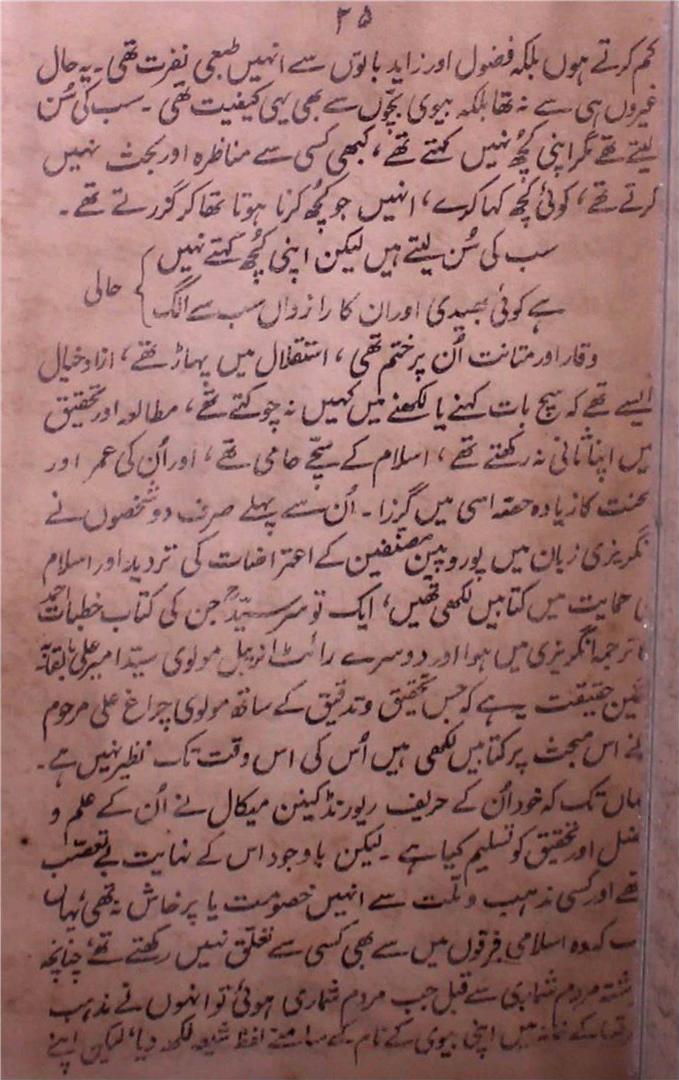 ۲۵
کم کرتے ہوں بلکہ فضول اور زاید باتوں سے انہیں طبعی نفرت تھی۔ یہ حال
غیروں ہی سے نہ تھا بلکہ بیوی بچّوں سے بھی یہی کیفیت تھی۔ سب کی سُن
لیتے تھے مگر اپنی کچُھ نہیں کہتے تھے، کبھی کسی سے مناظرہ اور بحث نہیں
کرتے تھے، کوئی کچُھ کہا کرے، انہیں جو کچُھ کرنا ہوتا تھا کر گزرتے تھے۔
سب کی سُن لیتے ہیں لیکن اپنی کچُھ کہتے نہیں
ہے کوئی بھیدی اور ان کا رازداں سب سے الگ } حالی
وقار اور متانت اُن پر ختم تھی، استقلال میں پہاڑ تھے، ازاد خیال
ایسے تھے کہ سچ بات کہنے یا لکھنے میں کہیں نہ چوکتے تھے، مطالعہ اور تحقیق
میں اپنا ثانی نہ رکھتے تھے، اسلام کے سچّے حامی تھے، اور اُن کی عمر اور
محنت کا زیادہ حصّہ اسی میں گزرا۔ اُن سے پہلے صرف دو شخصوں نے
نگریزی زبان میں یوروپین مصنفین کے اعتراضات کی تردید اور اسلام
حمایت میں کتابیں لکھی تھیں، ایک تو سرسیّدؒ جن کی کتاب خطبات احمد
ترجمہ انگریزی میں ہوا اور دوسرے رائٹ انریبل مولوی سیّد امیر علی بالقابہ
حقیقت یہ ہے کہ جس تحقیق و تدقیق کے ساتھ مولوی چراغ علی مرحوم
نے اس مبحث پر کتابیں لکھی ہیں اُس کی اس وقت تک نظیر نہیں ہے۔
ہاں تک کہ خود اُن کے حریف ریورنڈ کینن میکال نے اُن کے علم و
ضل اور تحقیق کو تسلیم کیا ہے۔ لیکن باوجود اس کے نہایت بے تعصّب
تھے اور کسی مذہب و ملّت سے انہیں خصومت یا پرخاش نہ تھی یہاں
ب کہ وہ اسلامی فرقوں میں سے بھی کسی سے تعلّق نہیں رکھتے تھے، چنانچہ
شتہ مردم شماری سے قبل جب مردم شماری ہوئی تو انہوں نے مذہب
کے خانہ میں اپنی بیوی کے نام کے سامنے لفظ شیعہ لکھ دیا، لیکن اپنے